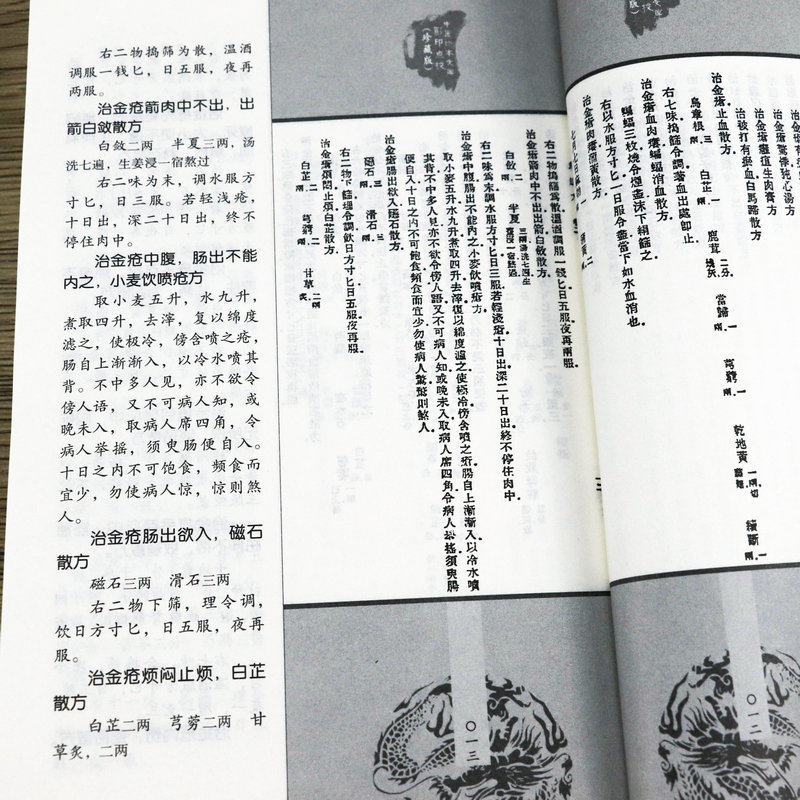 右二物捣筛为散，温酒
调服一钱匕，日五服，夜再
两服。
治金疮箭肉中不出，出
箭白敛散方
白敛二两　半夏三两，汤
洗七遍，生姜浸一宿熬过
右二味为末，调水服方
寸匕，日三服。若轻浅疮，
十日出，深二十日出，终不
停住肉中。
治金疮中腹，肠出不能
内之，小麦饮喷疮方
取小麦五升，水九升，
煮取四升，去滓，复以绵度
滤之，使极冷，傍含喷之疮，
肠自上渐渐入，以冷水喷其
背。不中多人见，亦不欲令
傍人语，又不可病人知，或
晚未入，取病人席四角，令
病人举摇，须臾肠便自入。
十日之内不可饱食，频食而
宜少，勿使病人惊，惊则煞
人。
治金疮肠出欲入，磁石
散方
磁石三两　滑石三两
右二物下筛，理令调，
饮日方寸匕，日五服，夜再
服。
治金疮烦闷止烦，白芷
散方
白芷二两　芎䓖二两　甘
草炙，二两
影印点校
（珍藏版）
右二物搗篩爲散溫酒調服一錢匕日五服夜再兩服。
治金瘡箭肉中不出出箭白斂散方
白斂二兩　半夏三兩湯洗七遍生薑浸一宿熬過
右二味爲末調水服方寸匕日三服若輕淺瘡十日出深二十日出終不停住肉中。
治金瘡中腹腸出不能內之小麥飲噴瘡方。
取小麥五升水九升煮取四升去滓復以綿度濾之使極冷傍含噴之瘡腸自上漸漸入以冷水噴
其背不中多人見亦不欲令傍人語又不可病人知或晚未入取病人席四角令病人舉搖須臾腸
便自入十日之內不可飽食頻食而宜少勿使病人驚驚則煞人。
治金瘡腸出欲入磁石散方
磁石三兩　滑石三兩
右二物下篩理令調飲日方寸匕日五服夜再服。
治金瘡煩悶止煩白芷散方
白芷二兩　芎藭二兩　甘草炙二兩
〇一三
治被打有瘀血白馬蹄散方
治金瘡止血散方。
烏章根三兩　白芷一兩　鹿茸二分燒灰　當歸一兩　芎藭一兩　乾地黃一兩切蒸焙　續斷一兩
右七味搗篩令調著血出處即止。
治金瘡血肉瘻蝙蝠消血散方。
蝙蝠三枚燒令煙盡沫下絹篩之
右以水服方寸匕一日服令盡當下如水血消也。
〇一二